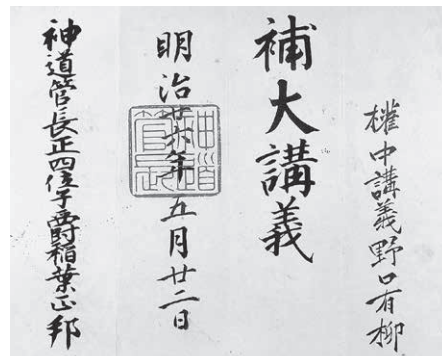 権中講義野口有柳
補大講義
明治廿六年五月廿二日
神道管長正四位子爵稲葉正邦
神道
管長